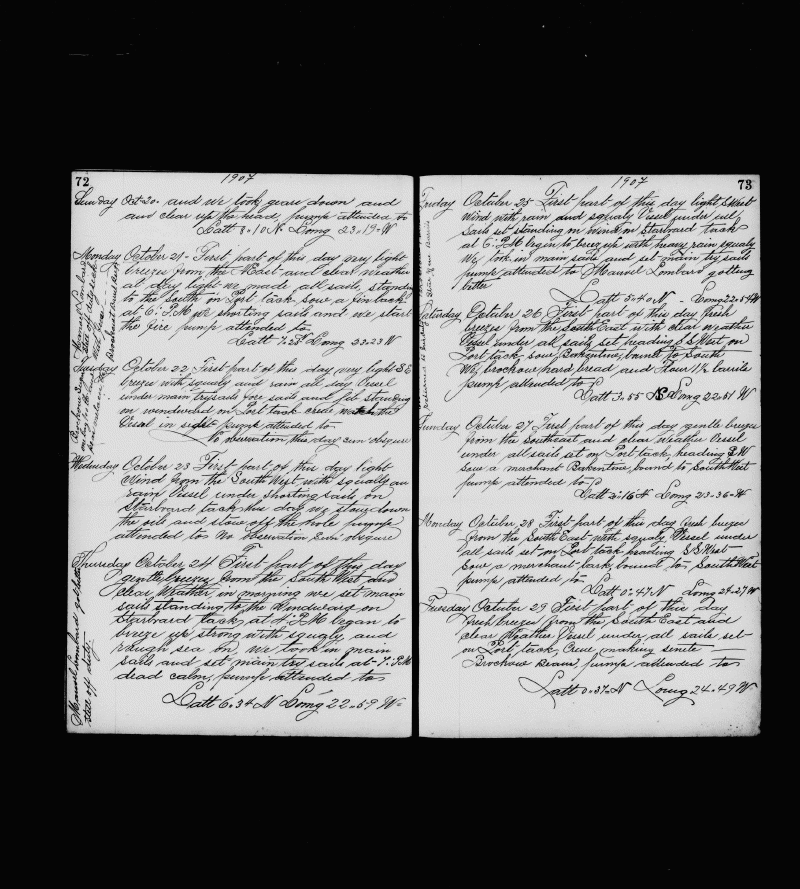 72
1907
Sunday Oct 20. and we took gear down and
and clear up the head, pump attended to
Latt 8.10 N Long 23.19 W
Monday October 21 First part of this day very light
breeze from the N East and clear weather
at day light we made all sails, standing
to the south on Port tack saw a fin back
at 6. P.M shorting sails and we start
the fire pump attended to
Latt 7. N Long 22.23 W
Tuesday October 22 First part of this day very light S E
breeze with squaly and rain all day Vesel
under main trysails fore sails and jib standing
on windward on Port tack crew
Vesal in pump attended to
No observation this day sun obsgure
Wednesday October 23 First part of this day light
Wind from the South West with squaly an
rain Vessel under shorting sails on
Starboard tack this day we stow down
the oile and stow off the hole pump
attended to No observation Sun obsgure
Thursday October 24 First part of this day
gentle breeze from the South West and
clear Weather in morning we set main
sails standing to the Windward on
Starboard tack at 4. P.M began to
breeze up strong with squaly and
rough sea on, we took in main
sails and set main try sails at 7. P.M
dead calm, pump attended to
Latt 6.34 N Long 22.59 W
Manuel Lombard got better
still off duty
73
1907
Friday October 25 First part of this day light S West
Wind with rain and squaly Vesel under
sails set standing on wind on Starboard tack
at 6. P.M began to breeze up with heavy rain squaly
We took in main sails and set main try sails
pump attended to Manuel Lombard getting
better
Latt 5.40 N - Long 22.54 W
Saturday October 26 First part of this day fresh
breeze from the South East with clear weather
Vessel under all sails set heading S S West on
Port tack, saw Barkentine, bound to South
We brockow hard bread and flour 1½ barrils
pump attended to
Latt 3.55 N Long 22.51 W
Sunday October 27 First part of this day gentle breeze
from the Southeast and clear weather Vessel
under all sails set on Port tack heading S W
Saw a merchant Barkentine bound to South West
pump attended to
Latt 2.16 N Long 23.36 W
Monday October 28 First part of this day fresh breeze
from the South East with squaly Vessel under
all sails set on Port tack heading S S West
Saw a merchant bark, bound to South West
pump attended to
Latt 0.47 N Long 24.27 W
Tuesday October 29 First part of this day
fresh breeze from the South East and
clear Weather Vessel under all sails set
on Port tack, Crew making sinete
Brockow Beans, pump attended to
Latt 0.37 N Long 24.49 W